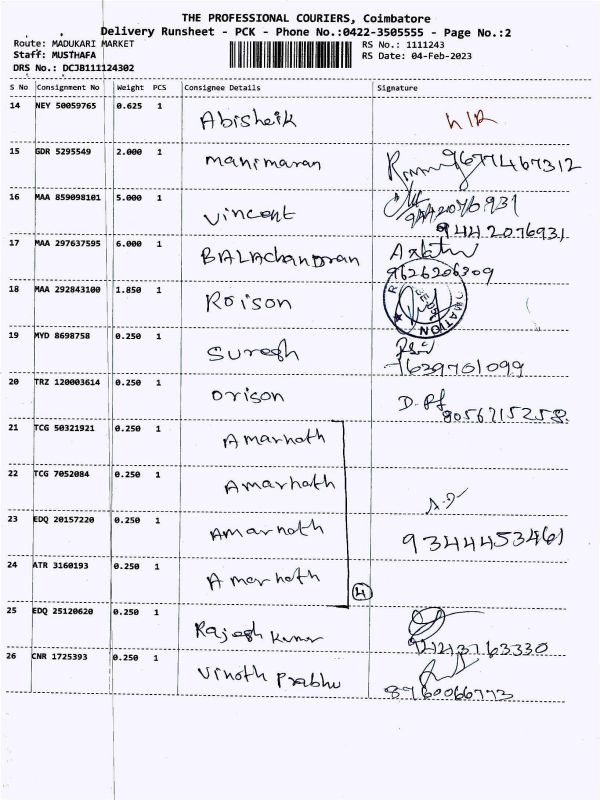 THE PROFESSIONAL COURIERS, Coimbatore
Delivery Runsheet - PCK - Phone No.:0422-3505555 - Page No.:2
Route: MADUKARI MARKET
Staff: MUSTHAFA
DRS No.: DCJB111124302
RS No.: 1111243
RS Date: 04-Feb-2023
S No Consignment No Weight PCS Consignee Details Signature
14 NEY 50059765 0.625 1 Abisheik
15 GDR 5295549 2.000 1 manimaran 9677467312
16 MAA 859098101 5.000 1 vincent
9442076931
17 MAA 297637595 6.000 1 BALAchanDran
9626206309
18 MAA 292843100 1.850 1 Roison
19 MYD 8698758 0.250 1 Suresh
7639701099
20 TRZ 120003614 0.250 1 orison
9056715258
21 TCG 50321921 0.250 1 Amarnath
22 TCG 7052084 0.250 1 Amarnath
23 EDQ 20157220 0.250 1 Amarnath 9344453461
24 ATR 3160193 0.250 1 Amarnath
4
25 EDQ 25120620 0.250 1 Rajesh Kumar
26 CNR 1725393 0.250 1 Vinoth Prabhu
8960066773